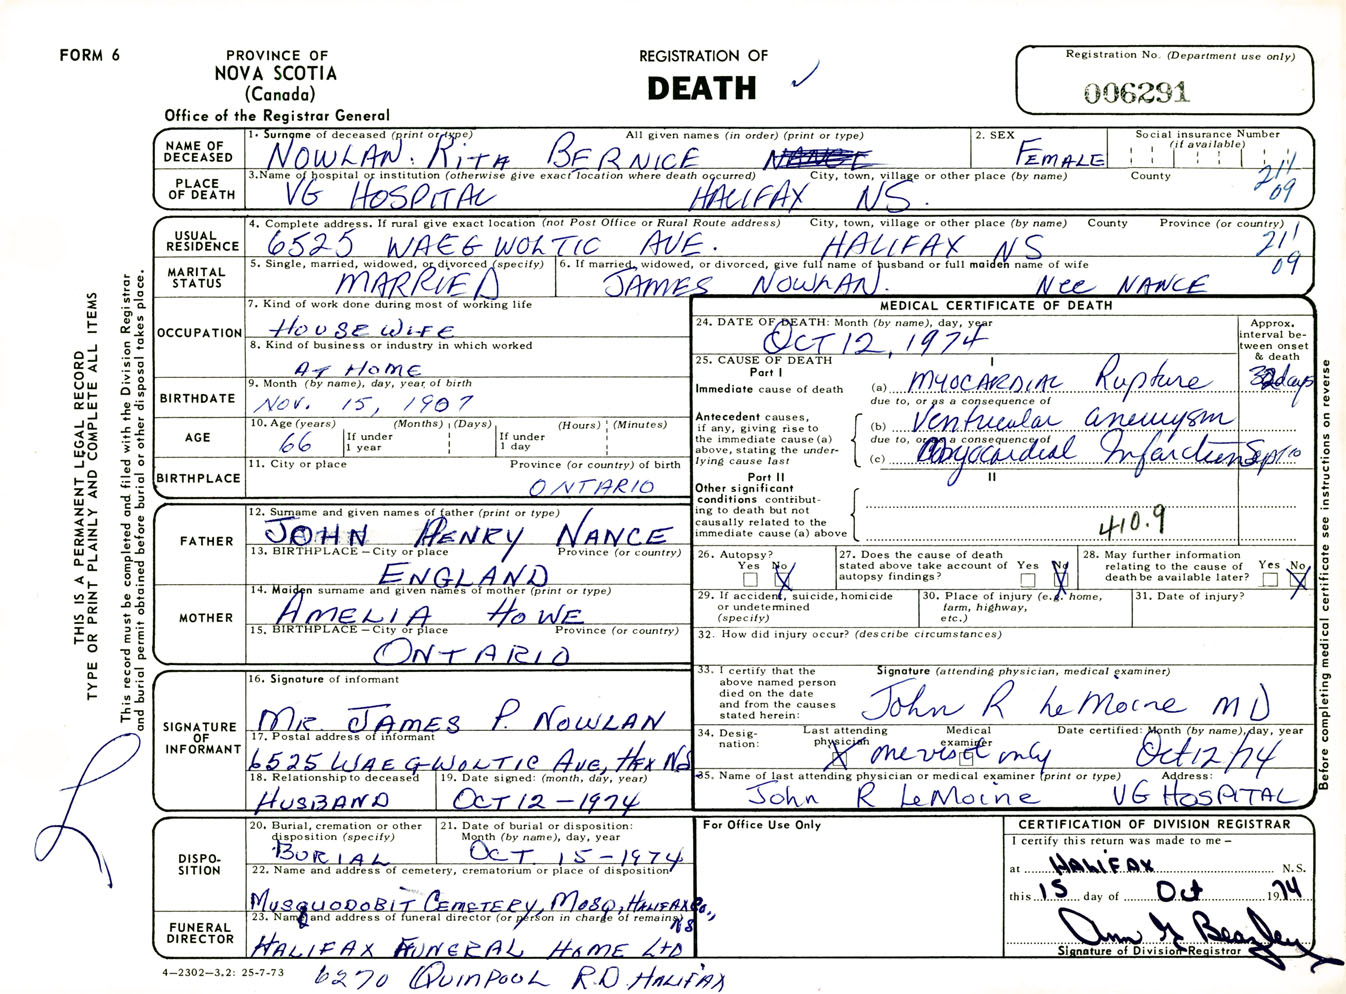 FORM 6
PROVINCE OF
NOVA SCOTIA
(Canada)
Office of the Registrar General
REGISTRATION OF
DEATH
Registration No. (Department use only)
006291
NAME OF DECEASED
1. Surname of deceased (print or type) All given names (in order) (print or type)
NOWLAN. RITA BERNICE
2. SEX
FEMALE
Social insurance Number
(if available)
PLACE OF DEATH
3.Name of hospital or institution (otherwise give exact location where death occurred) City, town, village or other place (by name) County
VG HOSPITAL HALIFAX NS.
211
09
USUAL RESIDENCE
4. Complete address. If rural give exact location (not Post Office or Rural Route address) City, town, village or other place (by name) County Province (or country)
6525 WAEGWOLTIC AVE. HALIFAX NS
211
09
MARITAL STATUS
5. Single, married, widowed, or divorced (specify)
MARRIED
6. If married, widowed, or divorced, give full name of husband or full maiden name of wife
JAMES NOWLAN. NEE NANCE
OCCUPATION
7. Kind of work done during most of working life
HOUSEWIFE
8. Kind of business or industry in which worked
AT HOME
BIRTHDATE
9. Month (by name), day, year, of birth
NOV. 15, 1907
AGE
10. Age (years) (Months) (Days) (Hours) (Minutes)
66
If under
1 year
If under
1 day
BIRTHPLACE
11. City or place Province (or country) of birth
ONTARIO
FATHER
12. Surname and given names of father (print or type)
JOHN HENRY NANCE
13. BIRTHPLACE – City or place Province (or country)
ENGLAND
MOTHER
14. Maiden surname and given names of mother (print or type)
AMELIA HOWE
15. BIRTHPLACE – City or place Province (or country)
ONTARIO
SIGNATURE OF INFORMANT
16. Signature of informant
MR. JAMES P. NOWLAN
17. Postal address of informant
6525 WAEGWOLTIC AVE, HFX NS
18. Relationship to deceased
HUSBAND
19. Date signed: (month, day, year)
OCT 12 – 1974
DISPO-
SITION
20. Burial, cremation or other
disposition (specify)
BURIAL
21. Date of burial or disposition:
Month (by name), day, year
OCT. 15 – 1974
22. Name and address of cemetery, crematorium or place of disposition
MUSQUODOBIT CEMETERY, MOSQ, HALIFAX CO.,
NS
FUNERAL DIRECTOR
23. Name and address of funeral director (or person in charge of remains)
HALIFAX FUNERAL HOME LTD
6270 QUINPOOL RD. HALIFAX
4–2302–3.2: 25-7-73
MEDICAL CERTIFICATE OF DEATH
24. DATE OF DEATH: Month (by name), day, year
OCT 12, 1974
Approx.
interval be-
tween onset
& death
25. CAUSE OF DEATH
Part I
I
Immediate cause of death
(a) MYOCARDIAL Rupture
days
due to, or as a consequence of
Antecedent causes,
if any, giving rise to
the immediate cause (a)
above, stating the under-
lying cause last
(b) Ventricular aneurysm
due to, or as a consequence of
(c) Myocardial Infarction Sept 10
Part II
II
Other significant
conditions contribut-
ing to death but not
causally related to the
immediate cause (a) above
410.9
26. Autopsy?
Yes No
X
27. Does the cause of death
stated above take account of
autopsy findings?
Yes No
X
28. May further information
relating to the cause of
death be available later?
Yes No
X
29. If accident, suicide, homicide
or undetermined
(specify)
30. Place of injury (e.g. home,
farm, highway,
etc.)
31. Date of injury?
32. How did injury occur? (describe circumstances)
33. I certify that the
above named person
died on the date
and from the causes
stated herein:
Signature (attending physician, medical examiner)
John R LeMoine MD
34. Desig-
nation:
Last attending
physician
X
one visit only
Medical
examiner
Date certified: Month (by name), day, year
Oct 12/74
35. Name of last attending physician or medical examiner (print or type) Address:
John R LeMoine VG HOSPITAL
For Office Use Only
CERTIFICATION OF DIVISION REGISTRAR
I certify this return was made to me –
at HALIFAX N.S.
this 15 day of Oct 1974
Ann G Beazley
Signature of Division Registrar
THIS IS A PERMANENT LEGAL RECORD
TYPE OR PRINT PLAINLY AND COMPLETE ALL ITEMS
This record must be completed and filed with the Division Registrar
and burial permit obtained before burial or other disposal takes place.
Before completing medical certificate see instructions on reverse